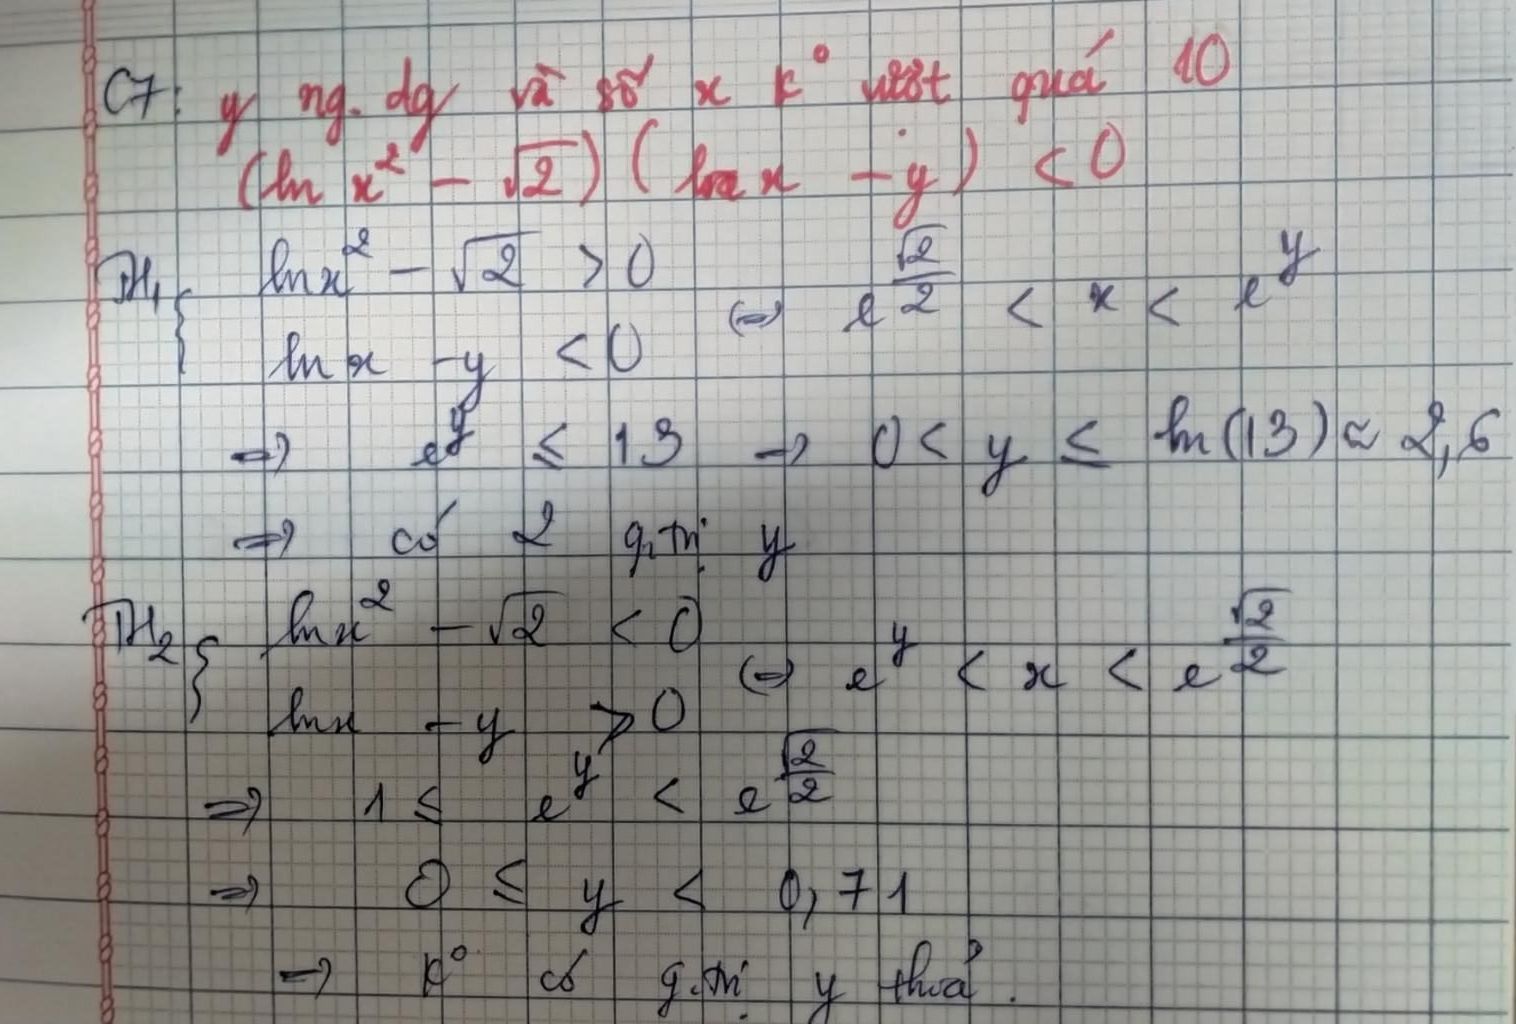 C7: y ng. dg và số x k° vượt quá 10
(ln x² - √2)(ln x - y) < 0
TH₁ { ln x² - √2 > 0
ln x - y < 0 (=) e^(√2/2) < x < e^y
=> e^y ≤ 13 → 0 < y ≤ ln(13) ≈ 2,6
=> có 2 g.trị y
TH₂ { ln x² - √2 < 0
ln x - y > 0 (=) e^y < x < e^(√2/2)
=> 1 ≤ e^y < e^(√2/2)
=> 0 ≤ y < 0,71
=> k° có g.trị y thoả.